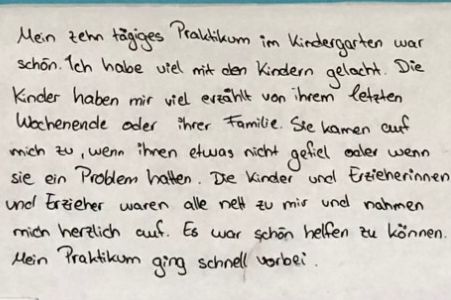 Mein zehn tägiges Praktikum im Kindergarten war
schön. Ich habe viel mit den Kindern gelacht. Die
Kinder haben mir viel erzählt von ihrem letzten
Wochenende oder ihrer Familie. Sie kamen auf
mich zu, wenn ihnen etwas nicht gefiel oder wenn
sie ein Problem hatten. Die Kinder und Erzieherinnen
und Erzieher waren alle nett zu mir und nahmen
mich herzlich auf. Es war schön helfen zu können.
Mein Praktikum ging schnell vorbei.